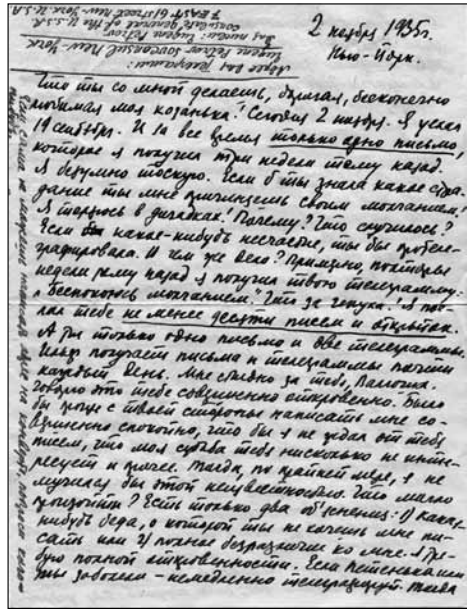 2 ноября 1935 г.
Нью-Йорк.
Адрес для телеграмм:
Eugene Petrov Sovconsul New-York
Для письма: Eugene Petrov
Consulate general of the U.S.S.R.
7 East 61 street New-York U.S.A.
Что ты со мной делаешь, дорогая, бесконечно
любимая моя козанька! Сегодня 2 ноября. Я уехал
19 сентября. И за все время только одно письмо,
которое я получил три недели тому назад.
Я безумно тоскую. Если б ты знала какое стра-
дание ты мне причиняешь своим молчанием!
Я теряюсь в догадках! Почему? Что случилось?
Если какое-нибудь несчастье, ты бы протеле-
графировала. В чем же дело? Примерно, полторы
недели тому назад я получил твою телеграмму:
„беспокоюсь молчанием". Что за чепуха! Я пос-
лал тебе не менее десяти писем и открыток.
А ты только одно письмо и две телеграммы.
Ильф получает письма и телеграммы почти
каждый день. Мне стыдно за тебя, Валюша.
Говорю это тебе совершенно откровенно. Было
бы лучше с твоей стороны написать мне со-
вершенно спокойно, что бы я не ждал от тебя
писем, что моя судьба тебя нисколько не инте-
ресует и прочее. Тогда, по крайней мере, я не
мучился бы этой неизвестностью. Что могло
произойти? Есть только два об'яснения: 1) какая-
нибудь беда, о которой ты не хочешь мне пи-
сать или 2) полное безразличие ко мне. Я тре-
бую полной откровенности. Если Петенька или
ты заболели – немедленно телеграфируй. Твоя
Если сама не